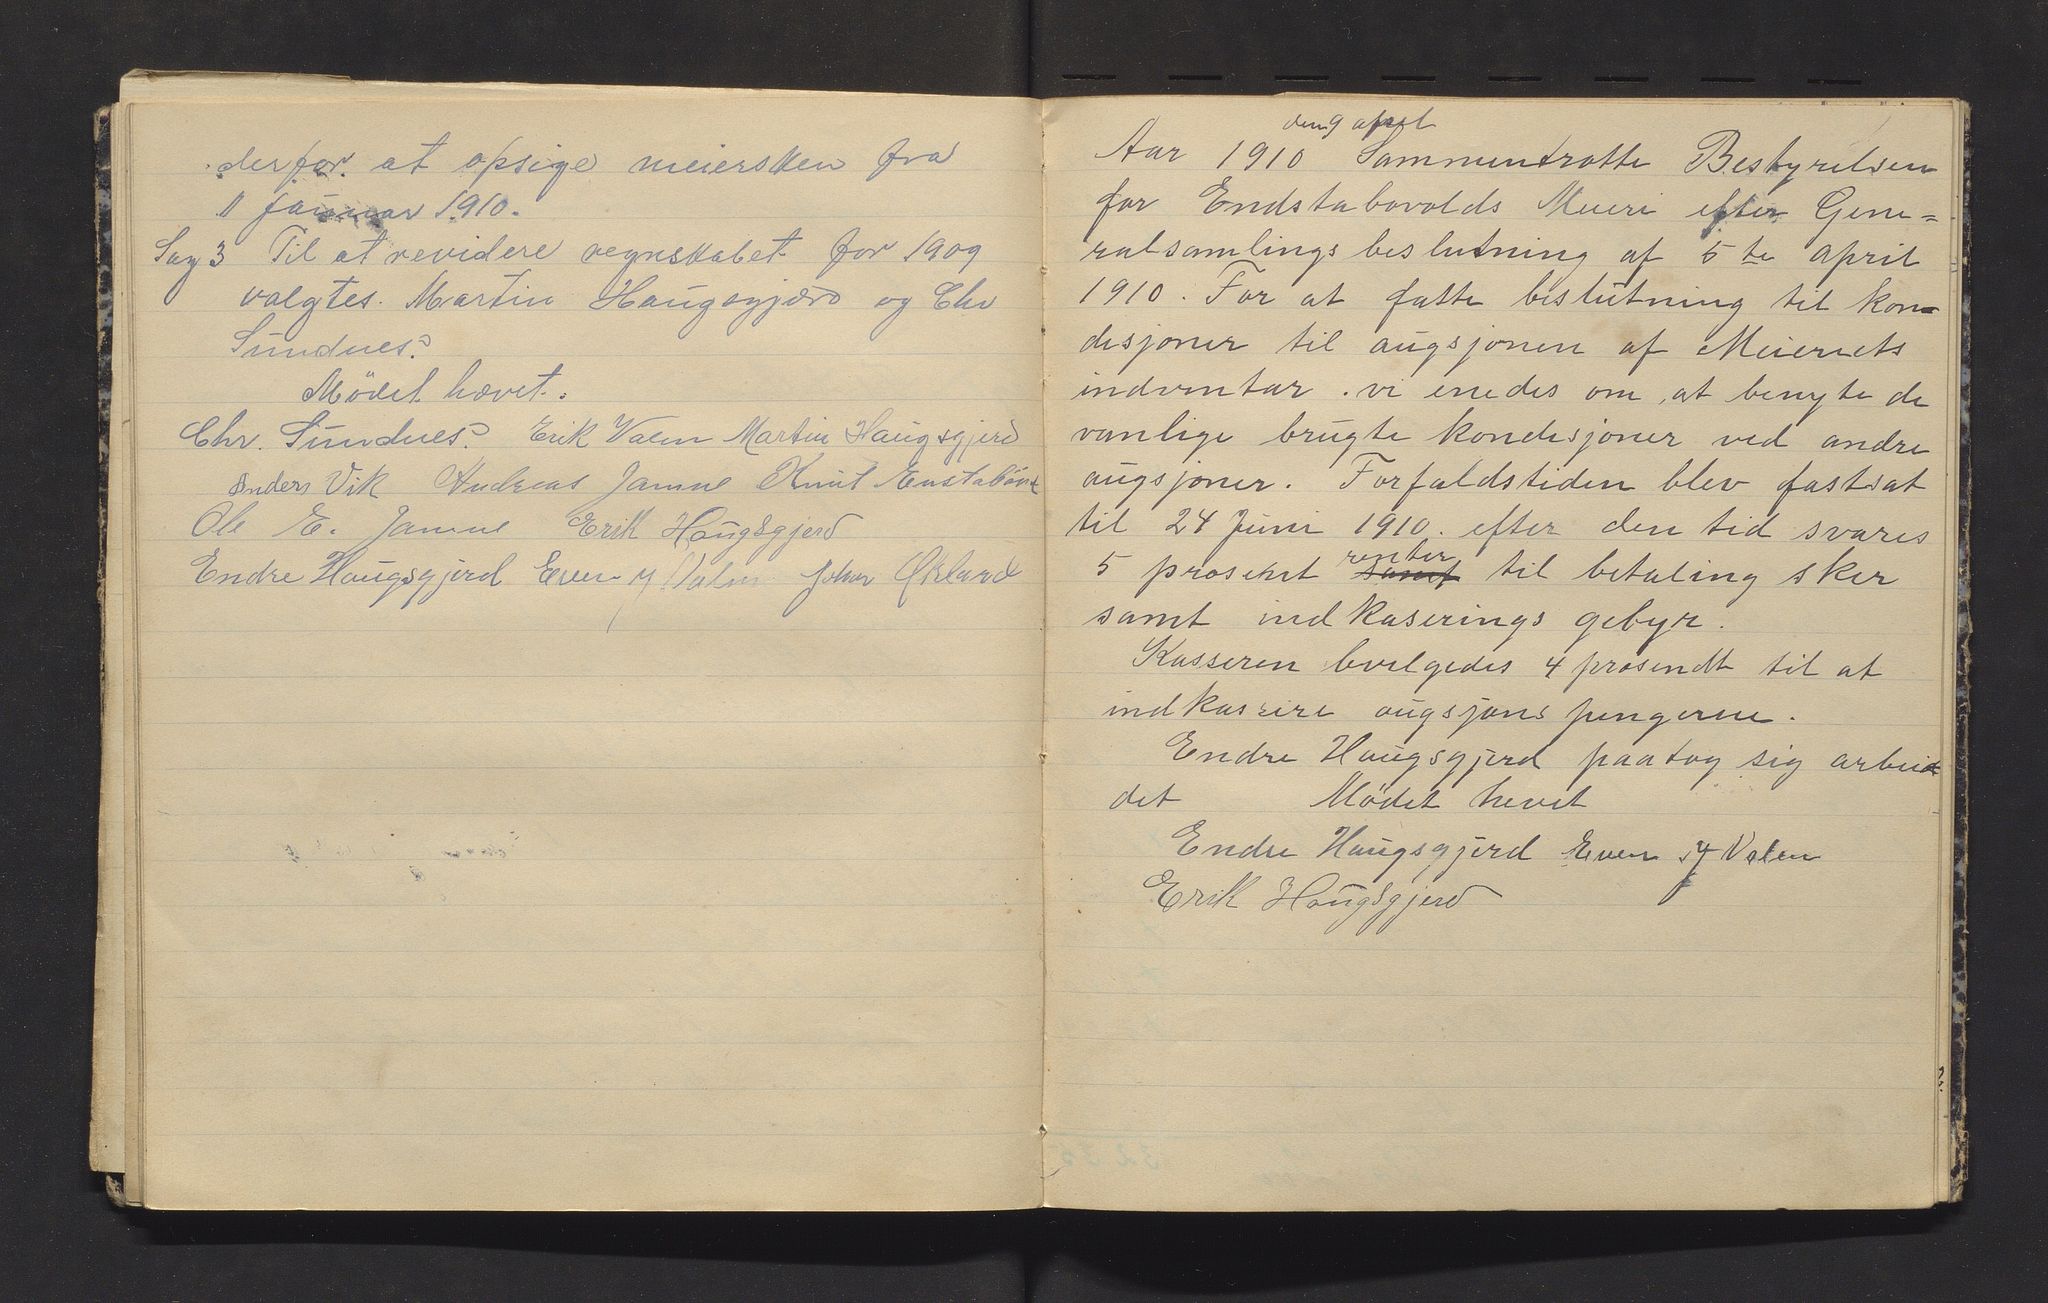 derfor at opsige meiersken fra
11 januar 1910.
Sag 3 Til at revidere regnskabet for 1909
valgtes. Martin Haugsgjerd og Chr
Sundnes.
Mödet hævet.
Chr. Sundnes. Erik Valen Martin Haugsgjerd
Anders Vik Andreas Jamne Knut Enstabövol
Ole E. Jamne Erik Haugsgjerd
Endre Haugsgjerd Even Valen Johan Økland
den 9 april
Aar 1910 Sammentratte Bestyrelsen
for Endstabovolds Meieri efter Gene=
ralsamlings beslutning af 5 te april
1910. For at fatte beslutning til kon-
desjoner til augsjonen af Meieriets
indventar. vi enedes om at benyte de
vanlige brugte kondisjoner ved andre
augsjoner. Forfaldstiden blev fastsat
til 24 Juni 1910. efter den tid svares
5 prosent renter samt til betaling sker
samt indkaserings gebyr.
Kasseren bevelgedes 4 prosendt til at
indkassire augsjons pengerne.
Endre Haugsgjerd paatog sig arbeid
det Mödet hevet
Endre Haugsgjerd Even Valen
Erik Haugsgjerd